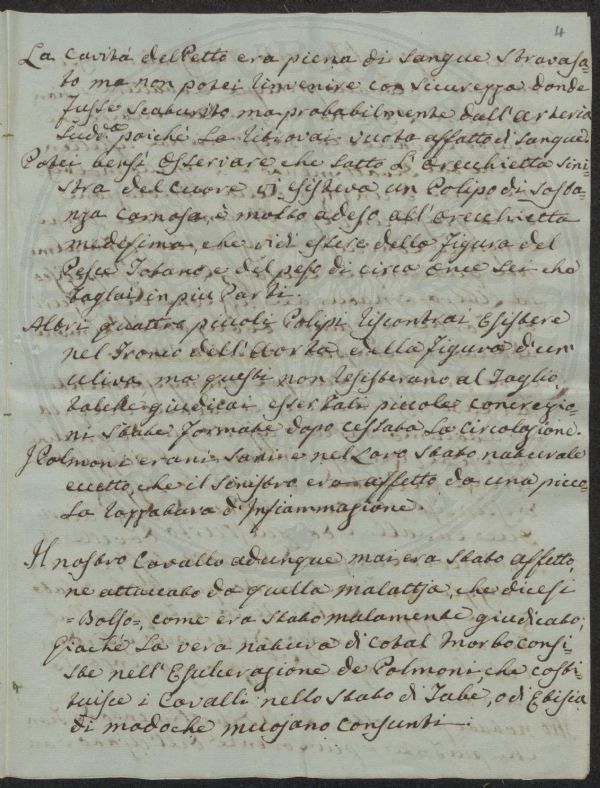 4
La Cavitá del Petto era piena di Sangue Stravasa=
to ma non potei rinvenire con Sicurezza donde
fusse Scaturito ma probabilmente dall'arteria
Sud.a poiché La ritrovai vuota affatto di Sangue.
Potei bensi Osservare che Sotto L'orecchietta Sini=
stra del Cuore vi esisteva un Polipo di Sosta=
nza Carnosa, è molto adeso all'orecchietta
medesima, che vidi essere della figura del
Pesce e del peso di circa once Sei che
tagliai in piu Parti.
Altri quattro piccoli Polipi riscontrai Esistere
nel Tronco dell'Aorta della figura d'un'
uliva, ma questi non resisterano al Taglio,
talche giudicai esser tali piccole concrezio=
ni State formate dopo cessata La Circolazione.
I Polmoni erani Sani e nel Loro Stato naturale
eccetto, che il Sinistro era affetto da una picco=
La d'Infiammazione.
Il nostro Cavallo adunque mai era Stato affetto,
ne attaccato da quella malattja, che dicesi
=Bolso=, come era Stato malamente giudicato;
Giaché La vera natura di cotal Morbo consi
ste nell'Esulcerazione de Polmoni, che costi
tuisce i Cavalli nello Stato di Tabe, o di Etisia
di modo che muojano Consunti.